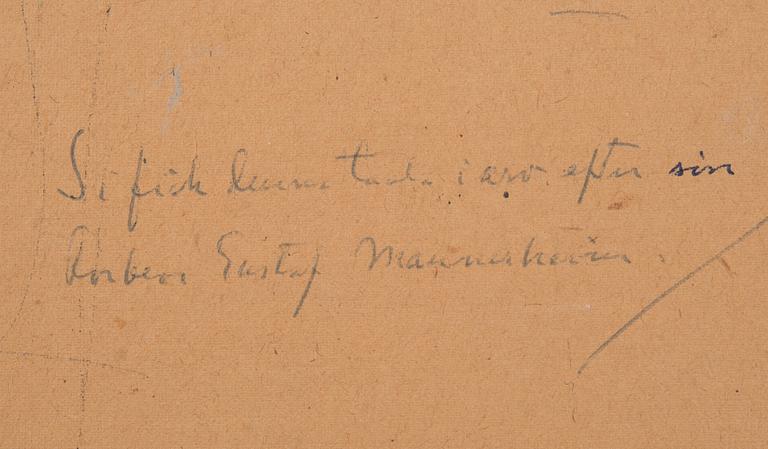 Si fick denna tavla i arv efter sin
Farbror Gustaf Mannerheim.